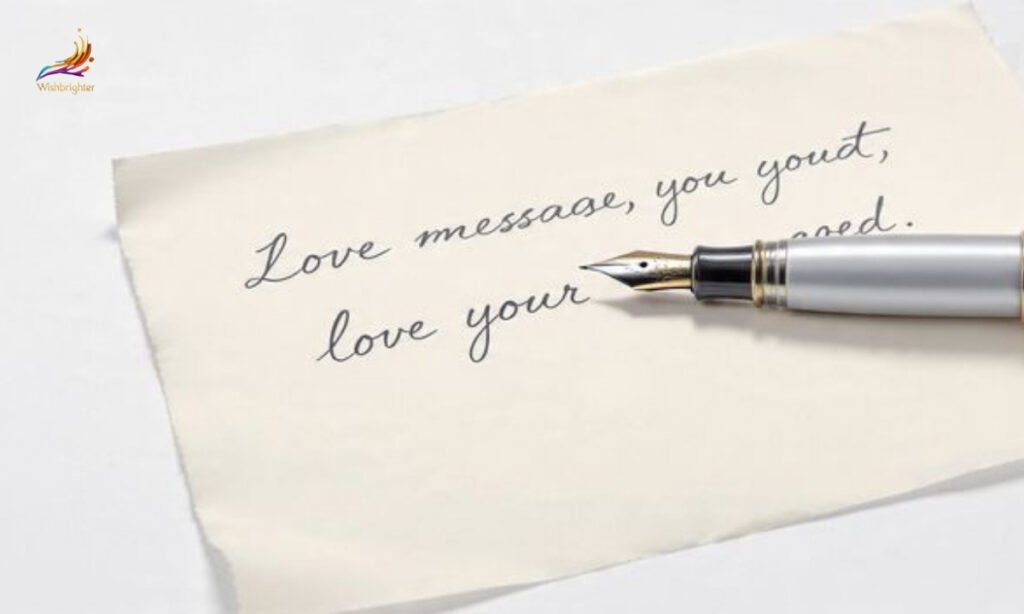 Wishbrighter
Love message, you youd,
love your